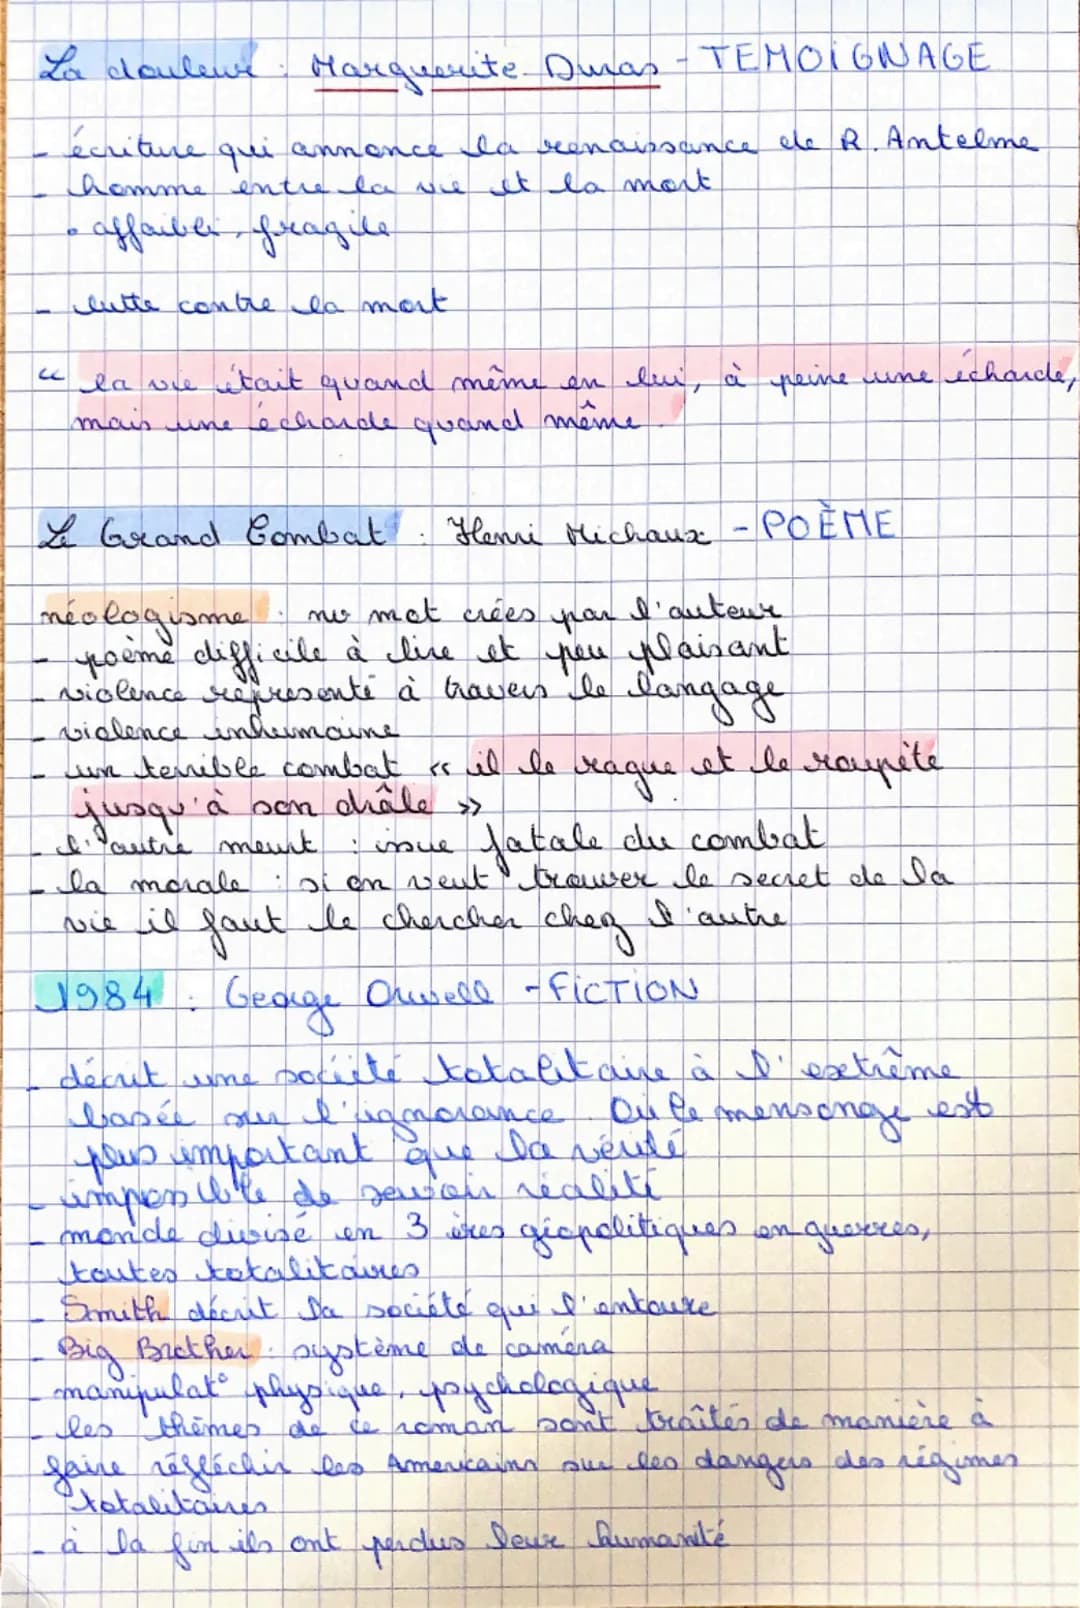 La douleur : Marguerite Duras - TEMOiGNAGE
- écriture qui annonce la renaissance de R. Antelme
- homme entre la vie et la mort
• affaibli, fragile
- lutte contre la mort
" la vie était quand même en lui, à peine une écharde,
mais une écharde quand même.
Le Grand Combat : Henri Michaux - POÈME
néologisme : nv mot crées par l'auteur
- poème difficile à lire et peu plaisant
- violence représenté à travers le langage
- violence inhumaine
- un terrible combat « il le rague et le roupète
jusqu'à son drâle »
- l'autre meurt : issue fatale du combat
- la morale : si on veut trouver le secret de la
vie il faut le chercher chez l'autre
1984 : George Orwell - FiCTiON
- décrit une société totalitaire à l'extrême
basée sur l'ignorance. Où le mensonge est
plus important que la vérité
- impossible de savoir réalité
- monde divisé en 3 ères géopolitiques en guerres,
toutes totalitaires
- Smith décrit la société qui l'entoure
- Big Brother : système de caméra
- manipulat° physique, psychologique
- les thèmes de ce roman sont traîtés de manière à
faire réfléchir les Américains sur les dangers des régimes
totalitaires
- à la fin ils ont perdus leur humanité